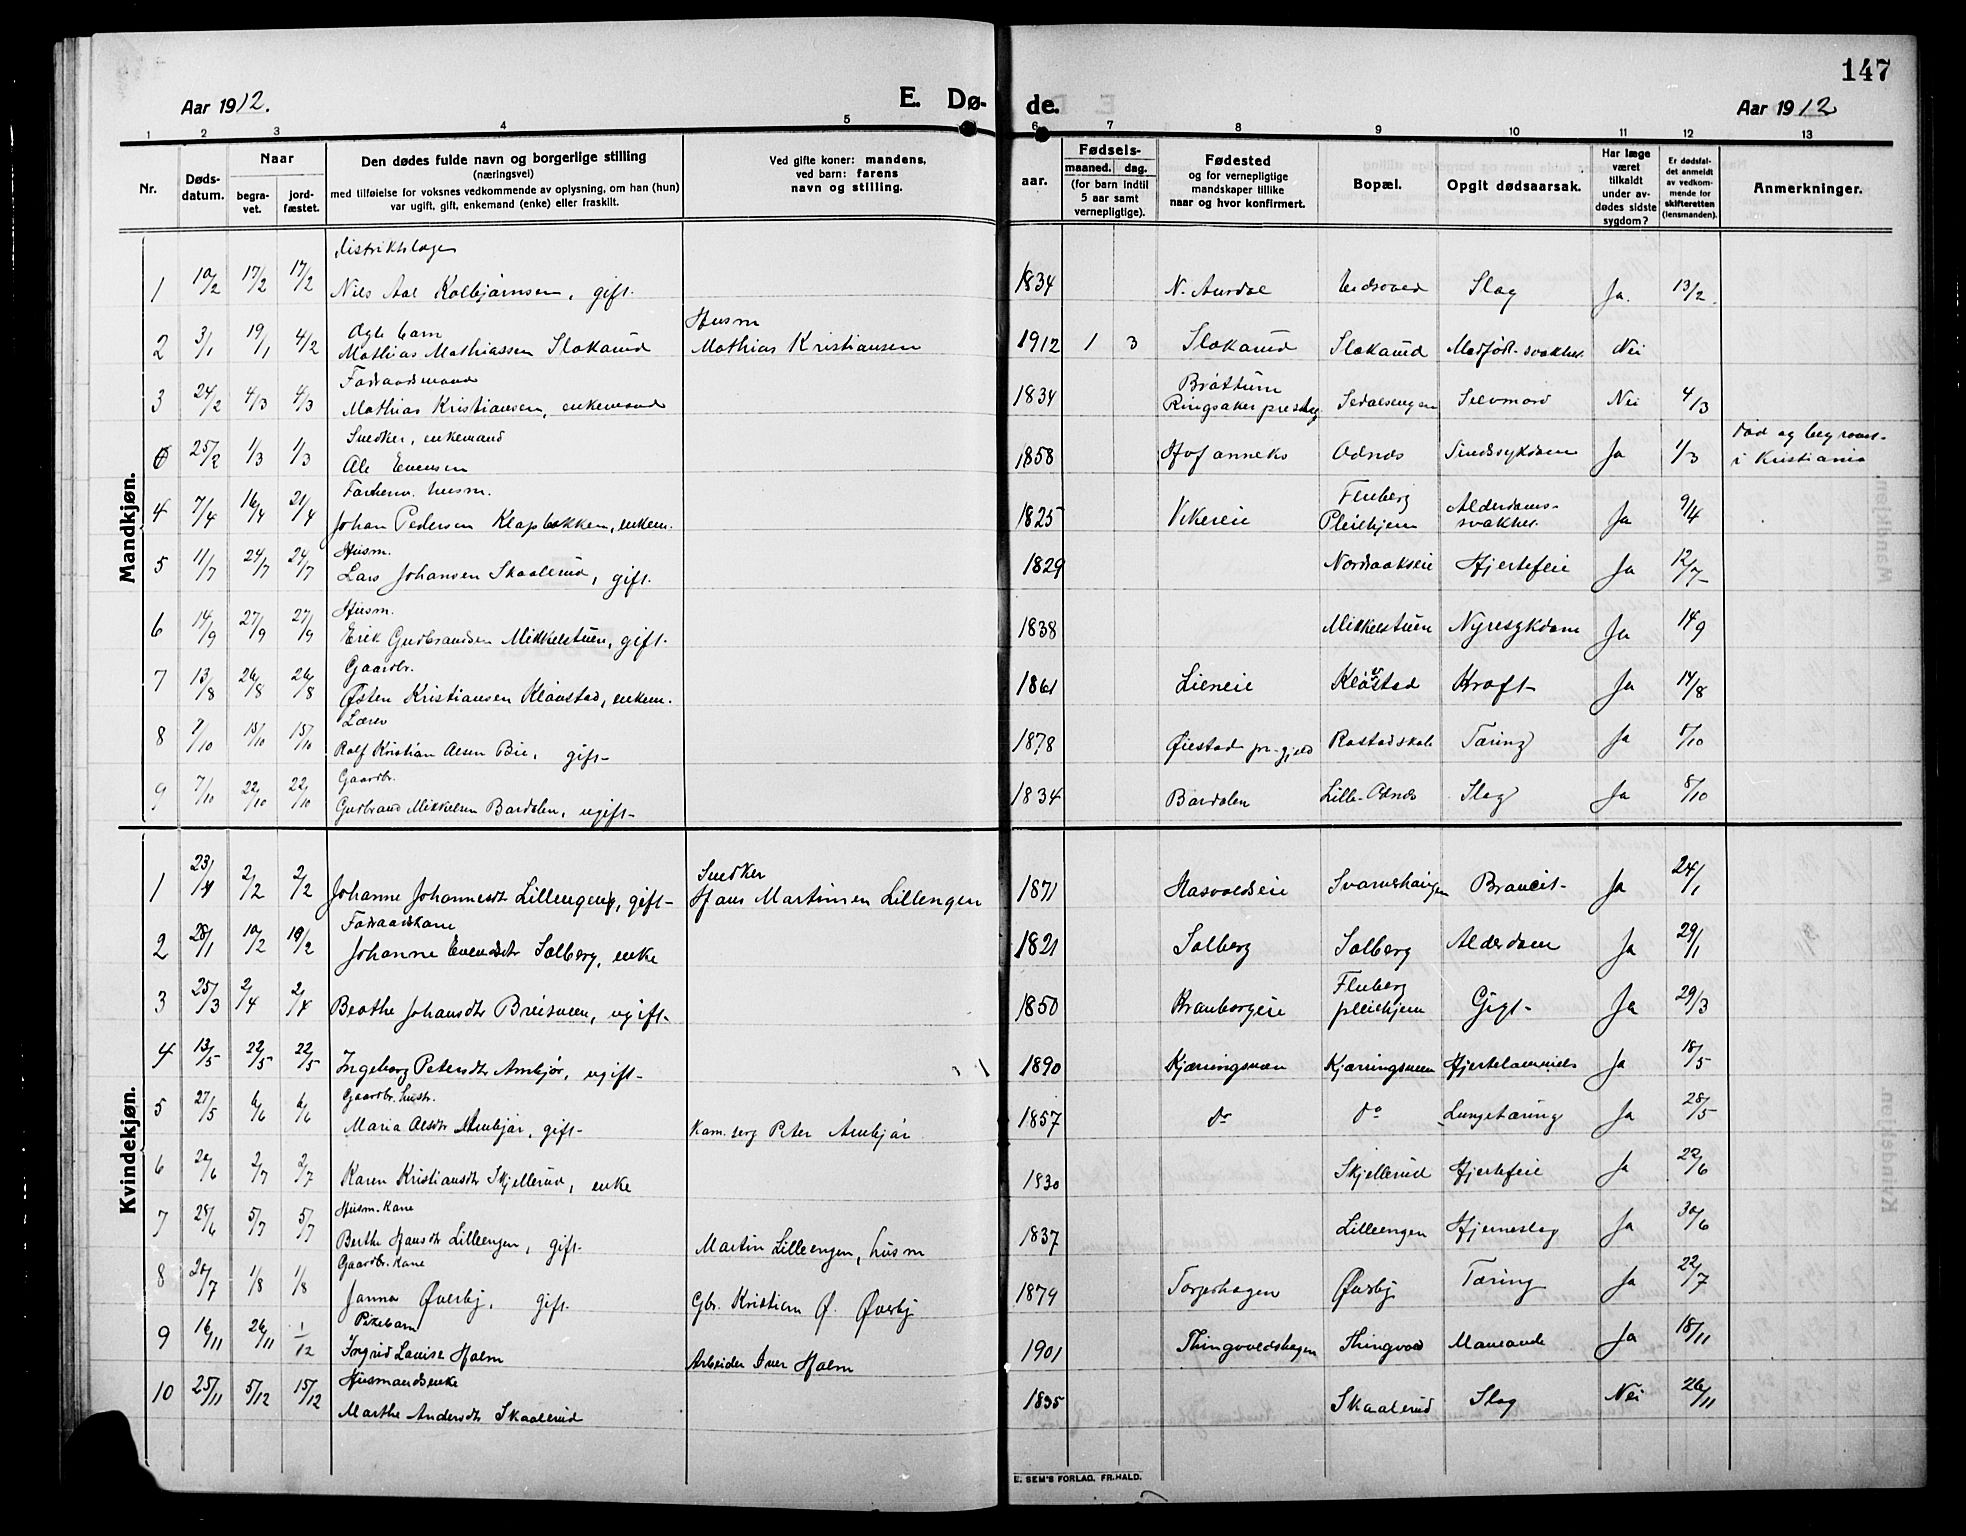 147
Aar 1912.
E. Dø-
de.
Aar 1912
1 2 3 4 5 6 7 8 9 10 11 12 13
Nr.
Døds-
datum.
Naar
begra-
vet.
jord-
fæstet.
Den dødes fulde navn og borgerlige stilling
(næringsvei)
med tilføielse for voksnes vedkommende av oplysning, om han (hun)
var ugift, gift, enkemand (enke) eller fraskilt.
Ved gifte koner: mandens,
ved barn: farens
navn og stilling.
Fødsels-
aar.
maaned. dag.
(for barn indtil
5 aar samt
vernepligtige).
Fødested
og for vernepligtige
mandskaper tillike
naar og hvor konfirmert.
Bopæl.
Opgit dødsaarsak.
Har læge
været
tilkaldt
under av-
dødes sidste
sygdom?
Er dødsfal-
det anmeldt
av vedkom-
mende for
skifteretten
(lensmanden).
Anmerkninger.
Mandkjøn.
distriktslæge
1 10/2 17/2 17/2 Nils Aal Kolbjørnsen, gift. 1834 N. Aurdal Slag Ja. 13/2
Husm
Ægte barn
2 3/1 19/1 4/2 Mathias Mathiassen Slokarud Mathias Kristiansen 1912 1 3 Slokarud Slokarud Medfødt svakhet Nei
Føderaadsmand Brøttum
3 24/2 4/3 4/3 Mathias Kristiansen, enkemand 1834 Ringsaker presteg Sedalsengen Selvmord Nei 4/3
Snedker, enkemand død og begravet
25/2 1/3 1/3 Ole Evensen 1858 Hof anneks Odnes Sindssykdom Ja 1/3 i Kristiania
Forhenv. husm. Fluberg Alderdoms-
4 7/4 16/4 21/4 Johan Pedersen Klopbakken, enkem. 1825 Vikeneie Pleiehjem svakhet Ja 9/4
Husm.
5 11/7 24/7 24/7 Lars Johansen Skaalerud, gift. 1829 Nordraakseie Hjertefeil Ja 12/7
Husm.
6 14/9 27/9 27/9 Erik Gudbrandsen Mikkelstuen, gift. 1838 Mikkelstuen Nyresykdom Ja 14/9
Gaardbr.
7 13/8 26/8 26/8 Østen Kristiansen Kløvstad, enkem. 1861 Lieneie Kløvstad Kræft Ja 14/8
Lærer
8 15/10 15/10 Rolf Kristian Olsen Bie, gift 1878 Øiestad pr.gjeld Rostadskole Tæring Ja
Gaardbr.
9 7/10 22/10 22/10 Gudbrand Mikkelsen Bardalen, ugift 1834 Bardalen Lille-Odnes Slag Ja 8/10
Kvindekjøn.
Snedker
1 23/1 2/2 2/2 Johanne Johannesdtr Lillengen, gift Hans Martinsen Lillengen 1871 Hasvoldseie Svarueshaugen Brancit Ja 24/1
Føderaadskone
2 28/1 10/2 10/2 Johanne Evensdtr Solberg, enke 1821 Solberg Solberg Alderdom Ja 29/1
Fluberg
3 25/3 2/4 2/4 Berthe Johansdtr Breisveen, ugift 1850 Branborgeie pleiehjem Gigt Ja 29/3
4 13/5 22/5 22/5 Ingeborg Petersdtr Ambjør, ugift 1890 Kjærringsveen Kjærringsveen Hjertelammelse Ja 18/5
Gaardbr. hustr.
5 27/5 6/6 6/6 Maria Olsdtr Ambjør, gift Peter Ambjør 1857 do do Lungetæring Ja 28/5
6 20/6 2/7 2/7 Karen Kristiansdtr Skjellerud, enke 1830 Skjellerud Hjertefeil Ja 22/6
Husm. kone
7 28/6 5/7 5/7 Berthe Hansdtr Lilleengen, gift. Martin Lilleengen, husm 1837 Lilleengen Hjerneslag Ja 30/6
Gaardbr. kone
8 20/7 1/8 1/8 Janna Øverby, gift. Gbr. Kristian Ø. Øverby 1879 Torgerhagen Øverby Tæring Ja 22/7
Pikebarn
9 16/11 26/11 1/12 Ingrid Lovise Holm Arbeider Iver Holm 1901 Thingvoldshagen Thingvold Ja 18/11
Husmandsenke
10 25/11 5/12 15/12 Marthe Andersdtr Skaalerud 1835 Skaalerud Slag Nei 26/11
E. SEM'S FORLAG, FR.HALD.